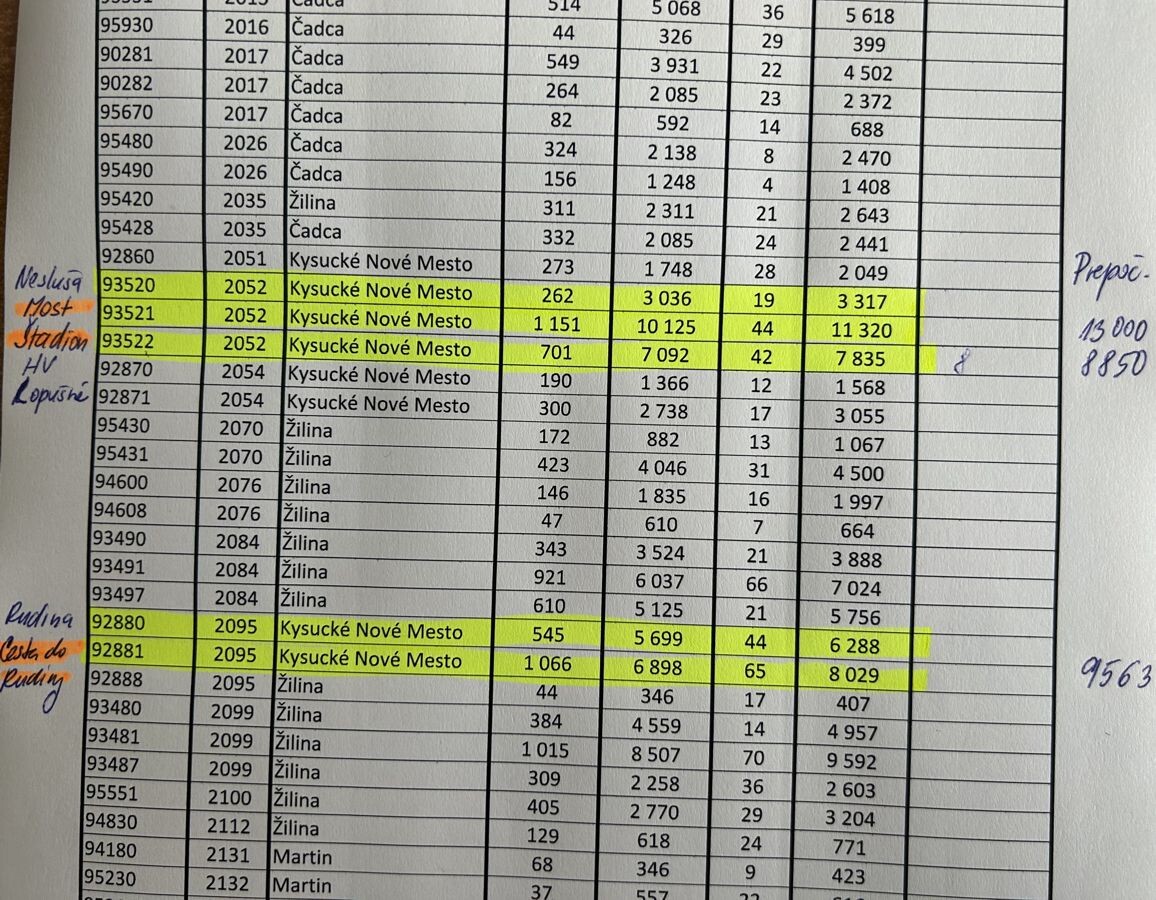 2015 Čadca 514 5 068 36 5 618
95930 2016 Čadca 44 326 29 399
90281 2017 Čadca 549 3 931 22 4 502
90282 2017 Čadca 264 2 085 23 2 372
95670 2017 Čadca 82 592 14 688
95480 2026 Čadca 324 2 138 8 2 470
95490 2026 Čadca 156 1 248 4 1 408
95420 2035 Žilina 311 2 311 21 2 643
95428 2035 Čadca 332 2 085 24 2 441
92860 2051 Kysucké Nové Mesto 273 1 748 28 2 049 Prepoč.
Nesluša 93520 2052 Kysucké Nové Mesto 262 3 036 19 3 317
Most 93521 2052 Kysucké Nové Mesto 1 151 10 125 44 11 320 13 000
Štadion 93522 2052 Kysucké Nové Mesto 701 7 092 42 7 835 8 8850
HV 92870 2054 Kysucké Nové Mesto 190 1 366 12 1 568
Ropušné 92871 2054 Kysucké Nové Mesto 300 2 738 17 3 055
95430 2070 Žilina 172 882 13 1 067
95431 2070 Žilina 423 4 046 31 4 500
94600 2076 Žilina 146 1 835 16 1 997
94608 2076 Žilina 47 610 7 664
93490 2084 Žilina 343 3 524 21 3 888
93491 2084 Žilina 921 6 037 66 7 024
93497 2084 Žilina 610 5 125 21 5 756
Rudina 92880 2095 Kysucké Nové Mesto 545 5 699 44 6 288
Cesta do 92881 2095 Kysucké Nové Mesto 1 066 6 898 65 8 029 9563
Rudiny 92888 2095 Žilina 44 346 17 407
93480 2099 Žilina 384 4 559 14 4 957
93481 2099 Žilina 1 015 8 507 70 9 592
93487 2099 Žilina 309 2 258 36 2 603
95551 2100 Žilina 405 2 770 29 3 204
94830 2112 Žilina 129 618 24 771
94180 2131 Martin 68 346 9 423
95230 2132 Martin 37 557